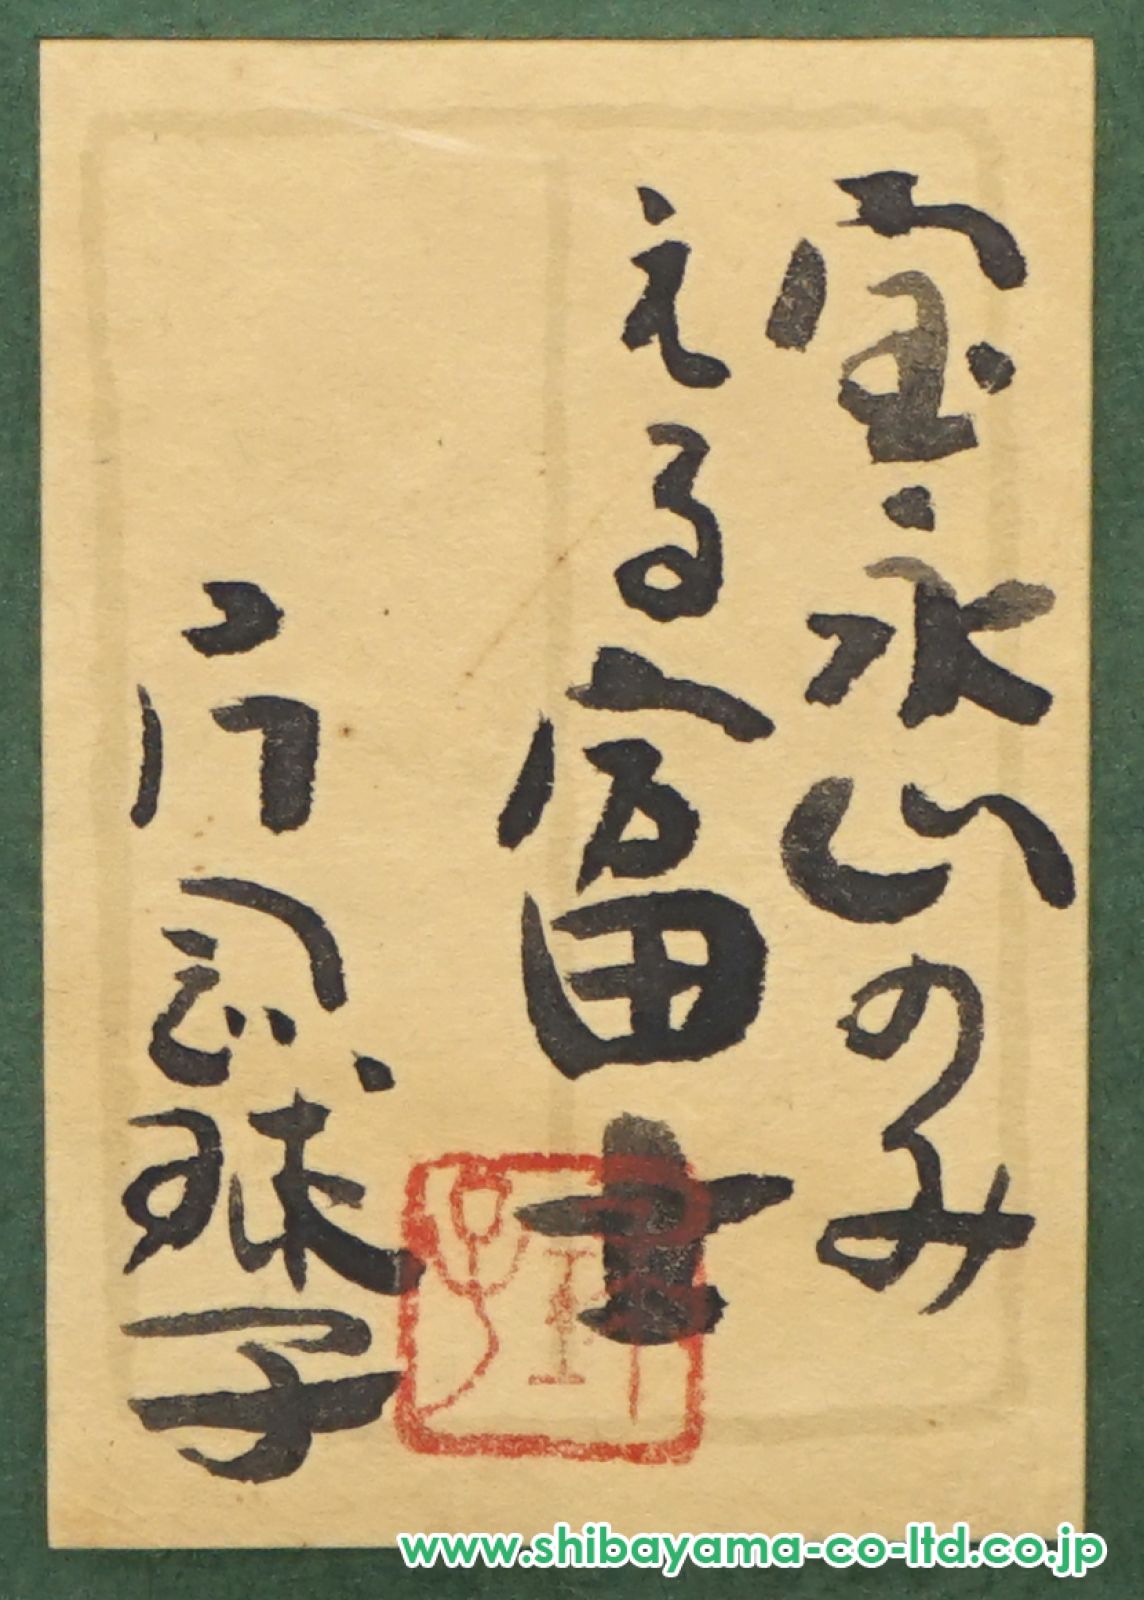 宝永山のみ
える富士
片岡球子
www.shibayama-co-ltd.co.jp